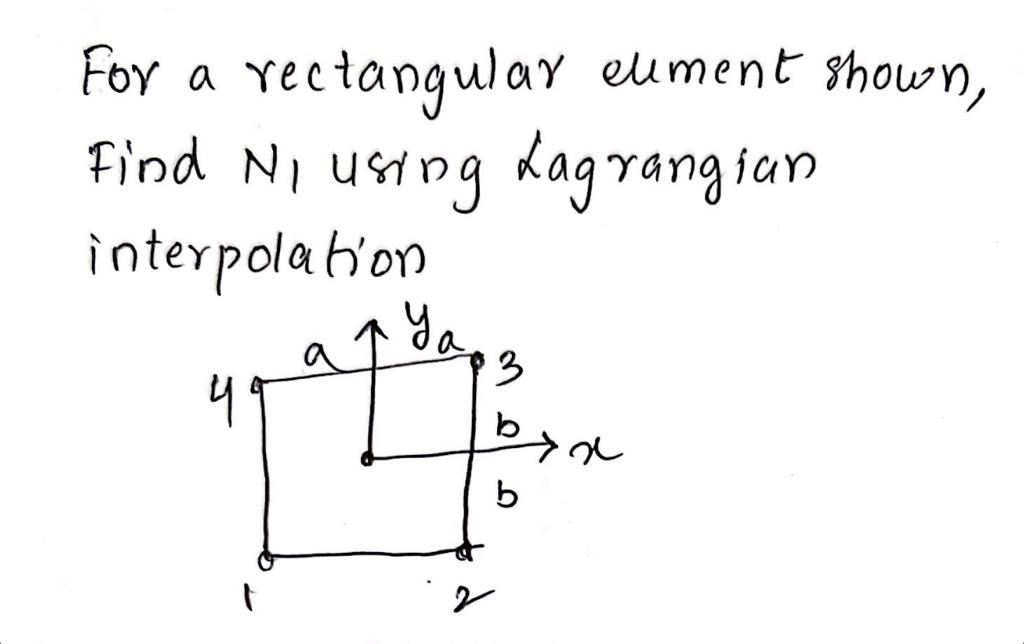 For a rectangular element shown,
Find N1 using Lagrangian
interpolation
y
a a
4 3
b
x
b
1 2